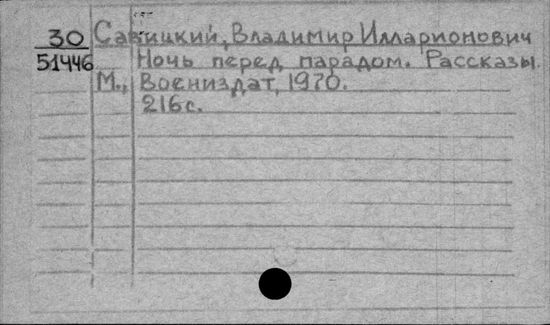 30 Савицкий, Владимир Илларионович
51446 Ночь перед парадом. Рассказы.
М., Воениздат, 1970.
216с.